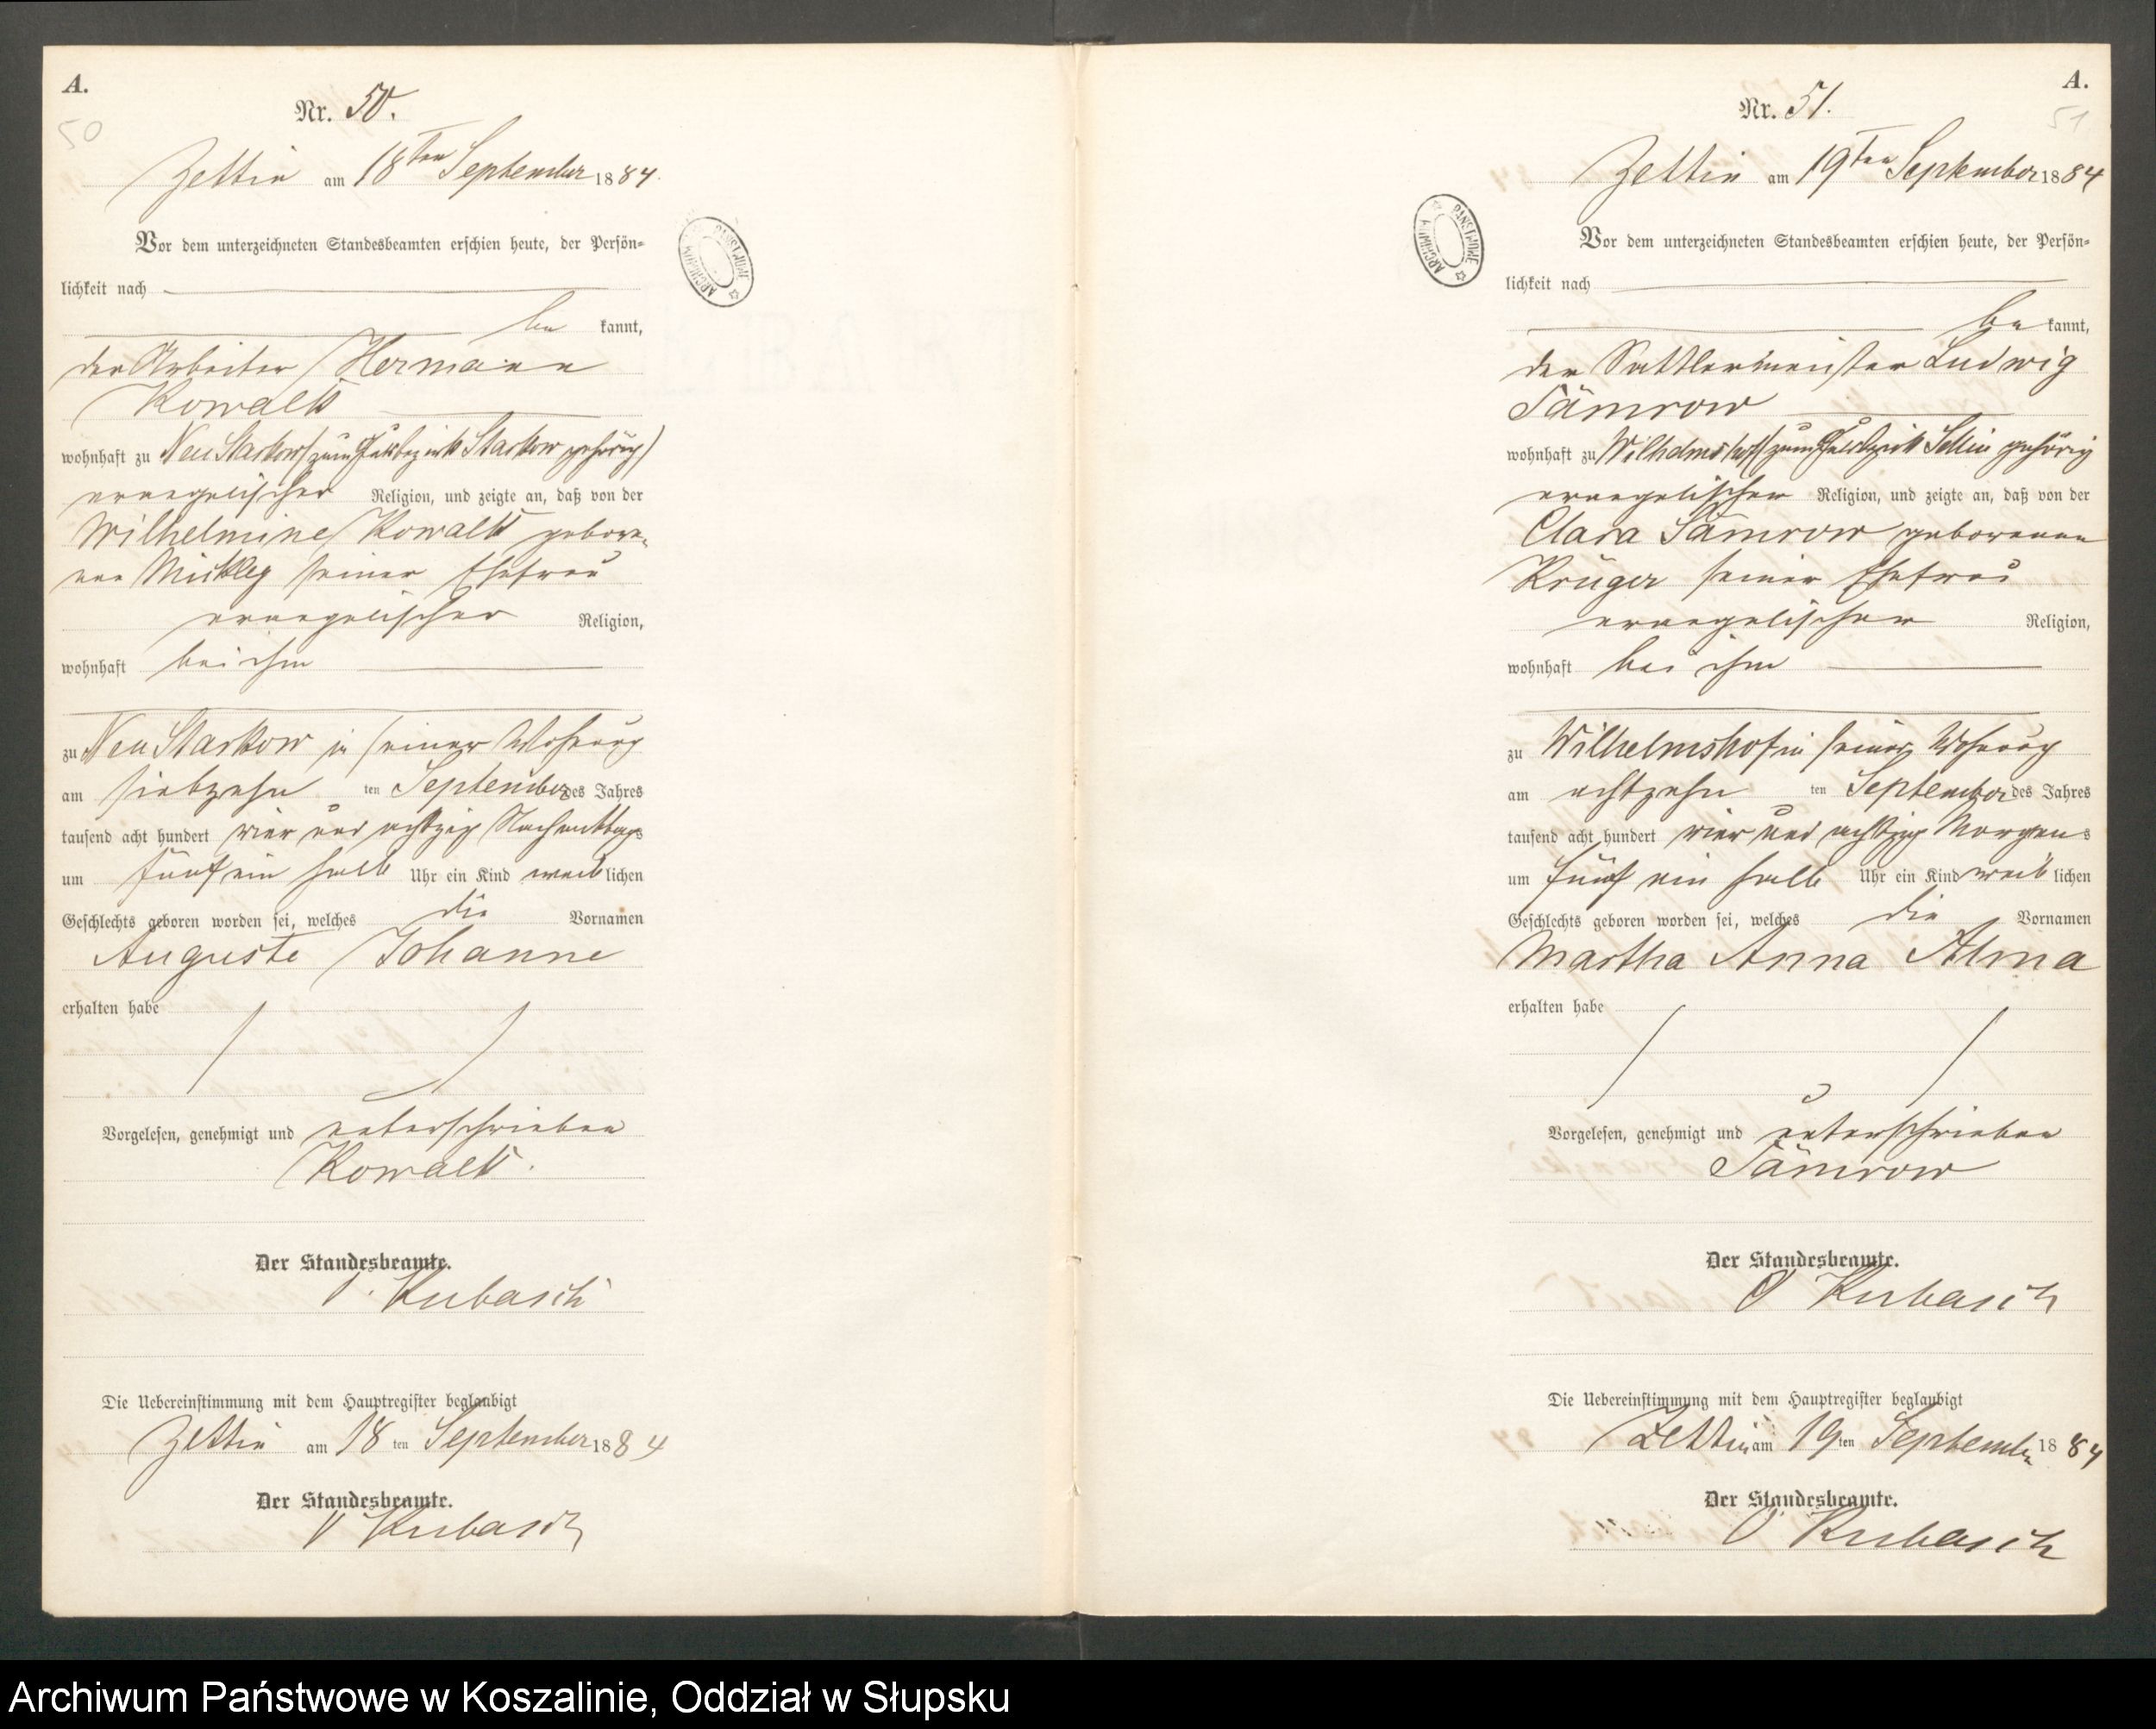 A.
50
Nr. 50.
Zettin am 18ten September 1884.
Vor dem unterzeichneten Standesbeamten erschien heute, der Persön=
lichkeit nach
be kannt,
der Arbeiter Hermann
Kowalk
wohnhaft zu Neu Starkow (zum Gutsbezirk Starkow gehörig)
evangelischer Religion, und zeigte an, daß von der
Wilhelmine Kowalk gebore-
nen seiner Ehefrau
evangelischer Religion,
wohnhaft bei ihm
zu Neu Starkow in seiner Wohnung
am siebzehn ten September des Jahres
tausend acht hundert vier und achtzig Nachmittags
um fünf ein halb Uhr ein Kind weib lichen
Geschlechts geboren worden sei, welches die Vornamen
Auguste Johanne
erhalten habe
Vorgelesen, genehmigt und unterschrieben
Kowalk.
Der Standesbeamte.
Kubasch
Die Uebereinstimmung mit dem Hauptregister beglaubigt
Zettin am 18 ten September 1884
Der Standesbeamte.
Kubasch
A.
51
Nr. 51.
Zettin am 19ten September 1884
Vor dem unterzeichneten Standesbeamten erschien heute, der Persön=
lichkeit nach
be kannt,
der Sattlermeister Ludwig
Sämrow
wohnhaft zu Wilhelmshof (zum Gutsbezirk gehörig
evangelischer Religion, und zeigte an, daß von der
Clara Sämrow geborenen
Krüger seiner Ehefrau
evangelischer Religion,
wohnhaft bei ihm
zu Wilhelmshof in seiner Wohnung
am achtzehn ten September des Jahres
tausend acht hundert vier und achtzig Morgens
um fünf ein halb Uhr ein Kind weib lichen
Geschlechts geboren worden sei, welches die Vornamen
Martha Anna Alma
erhalten habe
Vorgelesen, genehmigt und unterschrieben
Sämrow
Der Standesbeamte.
Kubasch
Die Uebereinstimmung mit dem Hauptregister beglaubigt
Zettin am 19 ten September 1884
Der Standesbeamte.
Kubasch
ARCHIWUM PAŃSTWOWE
ARCHIWUM PAŃSTWOWE
Archiwum Państwowe w Koszalinie, Oddział w Słupsku